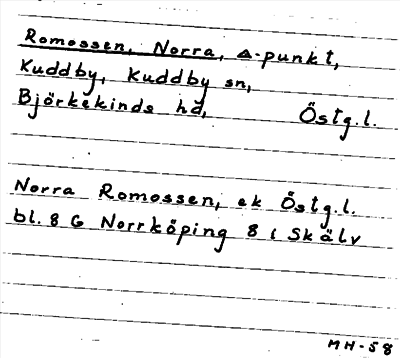 Romossen, Norra, Δ-punkt,
Kuddby, Kuddby sn,
Björkekinds hd, Östg.l.
Norra Romossen, ek Östg.l.
bl. 8 G Norrköping 8 i Skälv
MH-58